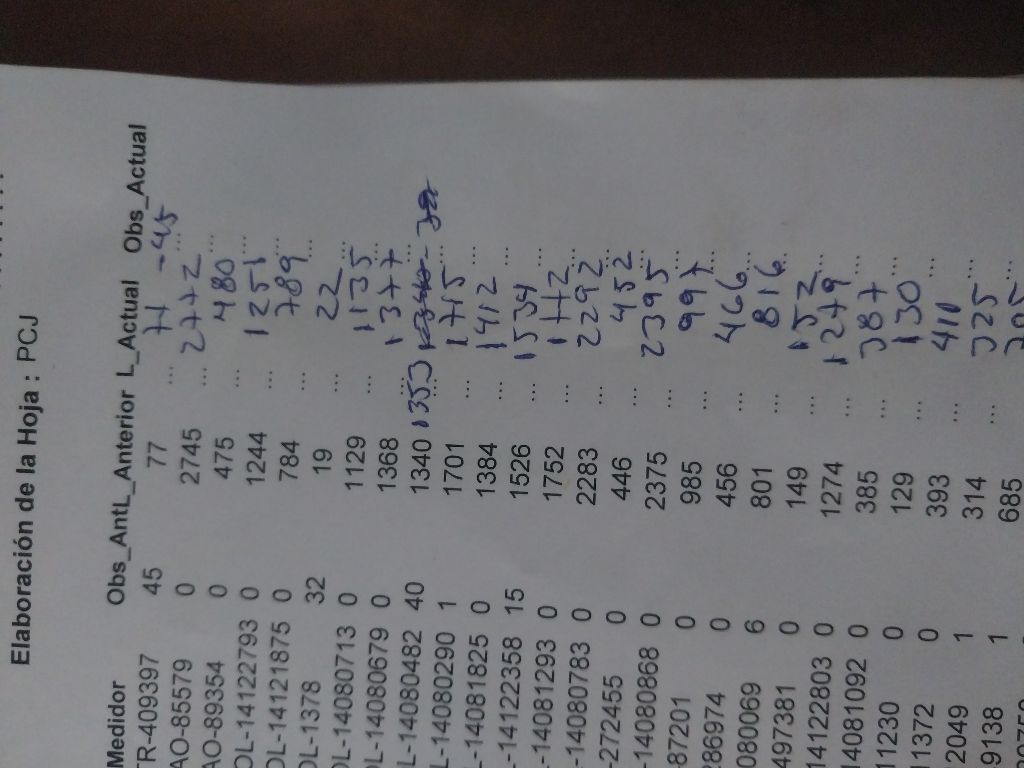 Elaboración de la Hoja : PCJ
Medidor Obs_AntL_Anterior L_Actual Obs_Actual
TR-409397 45 77 ... 77 -45
AO-85579 0 2745 ... 2772 ...
AO-89354 0 475 ... 480 ...
OL-14122793 0 1244 ... 1251 ...
OL-14121875 0 784 ... 789 ...
OL-1378 32 19 ... 22 ...
OL-14080713 0 1129 ... 1135 ...
OL-14080679 0 1368 ... 1377 ...
L-14080482 40 1340 1353 ... 38
L-14080290 1 1701 ... 1745 ...
L-14081825 0 1384 ... 1412 ...
-14122358 15 1526 ... 1534 ...
-14081293 0 1752 ... 1772 ...
-14080783 0 2283 ... 2292 ...
-272455 0 446 ... 452 ...
-14080868 0 2375 ... 2395 ...
87201 0 985 ... 997 ...
286974 0 456 ... 466 ...
080069 6 801 ... 816 ...
497381 0 149 ... 152 ...
141222803 0 1274 ... 1279 ...
14081092 0 385 ... 387 ...
11230 0 129 ... 130 ...
11372 0 393 ... 410 ...
22049 1 314 ... 325 ...
9138 1 685